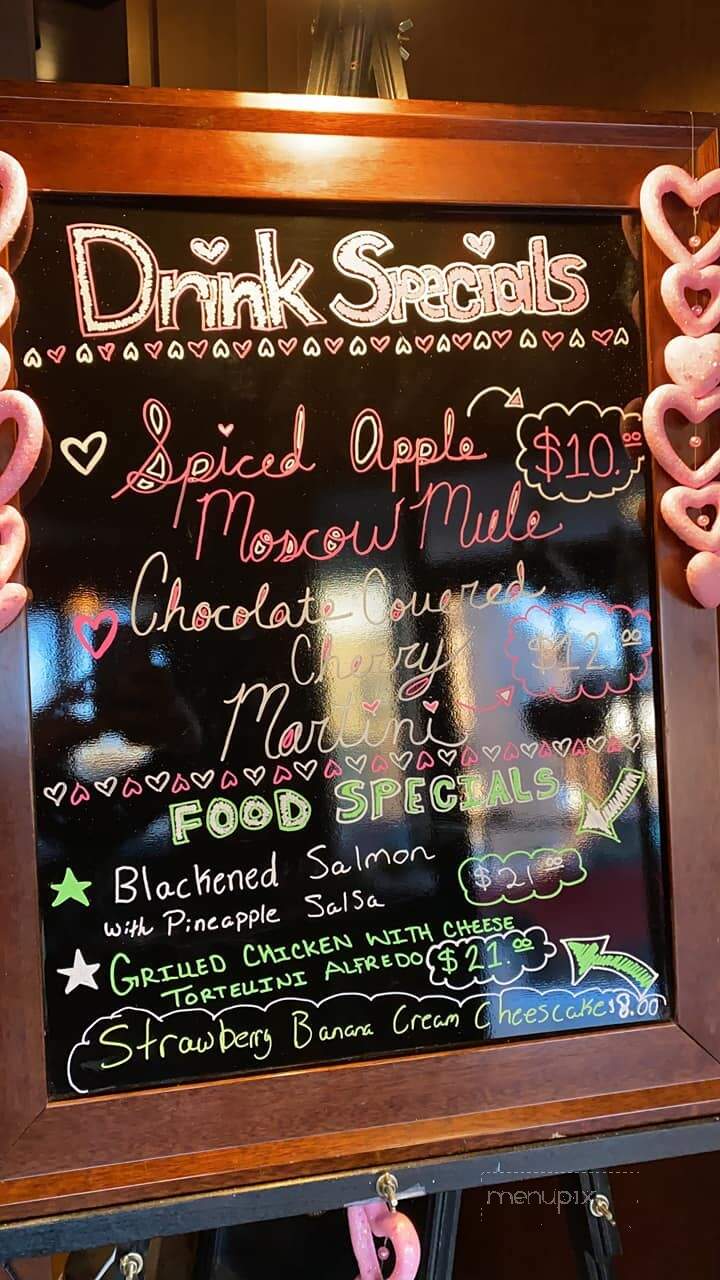 Drink Specials
Spiced Apple $10.00
Moscow Mule
Chocolate Covered
Cherry $12.00
Martini
FOOD SPECIALS
Blackened Salmon $21.00
with Pineapple Salsa
GRILLED CHICKEN WITH CHEESE
TORTELLINI ALFREDO $21.00
Strawberry Banana Cream Cheescake $8.00
menupix